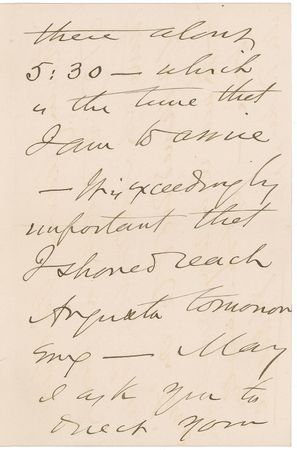 there about
5:30 — which
is the time that
I am to arrive
— It is exceedingly
important that
I should reach
Augusta tomorrow
eve — May
I ask you to
direct your